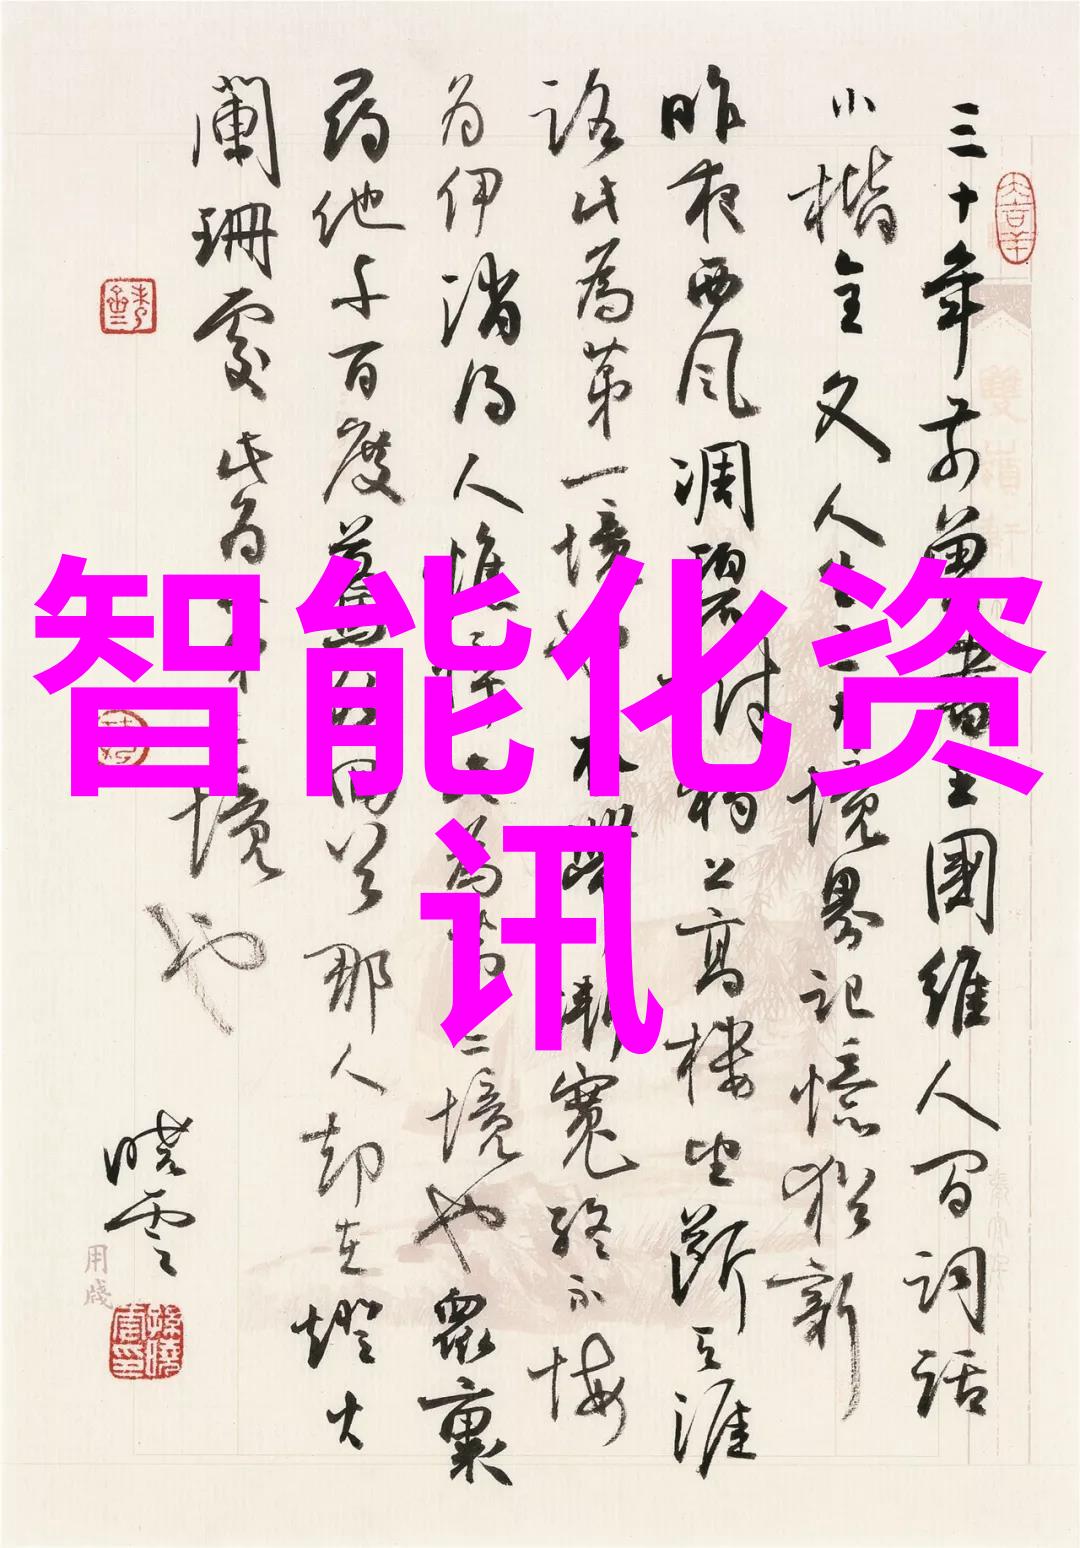 三十年前曾書王國維人間詞話
小楷全文人生三境界記憶猶新
昨夜西風凋碧樹獨上高樓望斷天涯
路此為第一境也衣帶漸寬終不悔
为伊消得人憔悴此為第二境也眾裏
尋他千百度驀然回首那人却在燈火
闌珊處此为第三境也
曉雲
用牋
智能化资
讯